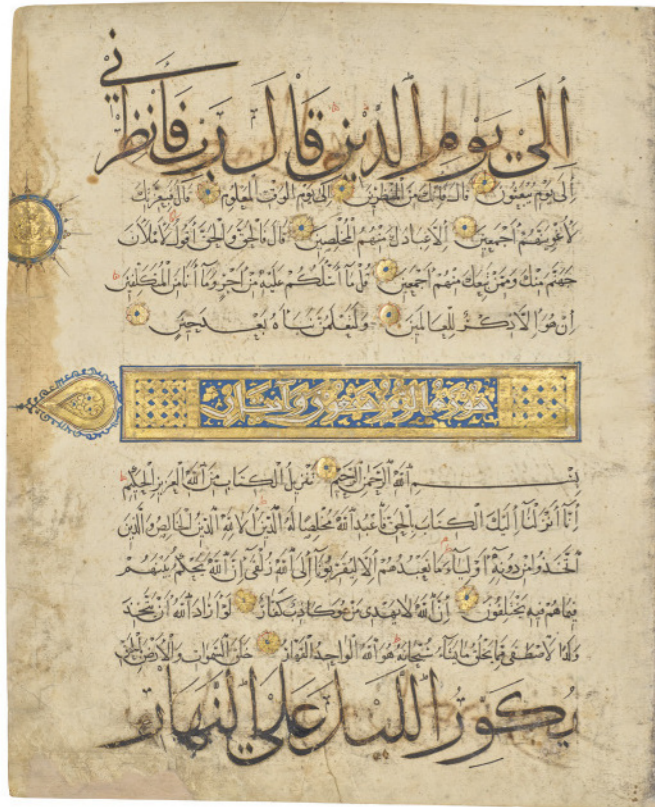 إلى يوم الدين قال رب فأنظرني
إلى يوم يبعثون قال فإنك من المنظرين إلى يوم الوقت المعلوم قال فبعزتك
لأغوينهم أجمعين إلا عبادك منهم المخلصين قال فالحق والحق أقول لأملأن
جهنم منك وممن تبعك منهم أجمعين قل ما أسئلكم عليه من أجر وما أنا من المتكلفين
إن هو إلا ذكر للعالمين ولتعلمن نبأه بعد حين
سورة الزمر وآيتان
بسم الله الرحمن الرحيم تنزيل الكتاب من الله العزيز الحكيم
إنا أنزلنا إليك الكتاب بالحق فاعبد الله مخلصا له الدين ألا لله الدين الخالص والذين
اتخذوا من دونه أولياء ما نعبدهم إلا ليقربونا إلى الله زلفى إن الله يحكم بينهم
فيما هم فيه يختلفون إن الله لا يهدي من هو كاذب كفار لو أراد الله أن يتخذ
ولدا لاصطفى مما يخلق ما يشاء سبحانه هو الله الواحد القهار خلق السموات والأرض بالحق
يكور الليل على النهار